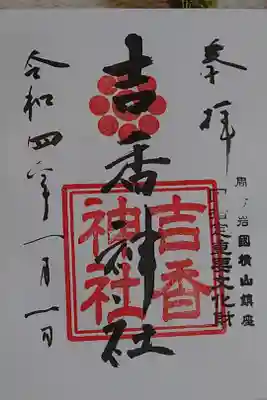 奉拝
周ノ岩國横山鎮座
指定重要文化財
吉香神社
吉香
神社
令和四年一月一日